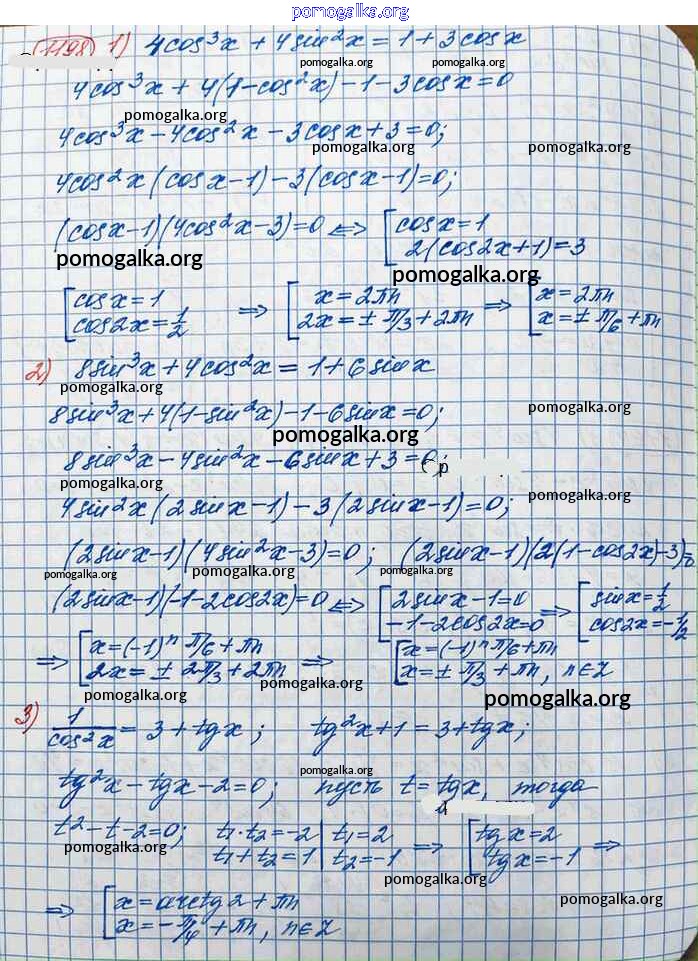 pomogalka.org
1198 1) 4cos³x + 4sin²x = 1 + 3cosx
pomogalka.org pomogalka.org
4cos³x + 4(1-cos²x) - 1 - 3cosx = 0
pomogalka.org
4cos³x - 4cos²x - 3cosx + 3 = 0;
pomogalka.org pomogalka.org
4cos²x(cosx-1) - 3(cosx-1) = 0;
(cosx-1)(4cos²x-3) = 0 <=> [cosx = 1
2(cos2x+1) = 3
pomogalka.org pomogalka.org
[cosx = 1 => [x = 2πn => [x = 2πn
cos2x = 1/2 2x = ± π/3 + 2πn x = ± π/6 + πn
pomogalka.org pomogalka.org pomogalka.org
2) 8sin³x + 4cos²x = 1 + 6sinx
pomogalka.org
8sin³x + 4(1-sin²x) - 1 - 6sinx = 0;
pomogalka.org pomogalka.org
8sin³x - 4sin²x - 6sinx + 3 = 0;
pomogalka.org pomogalka.org
4sin²x(2sinx-1) - 3(2sinx-1) = 0;
(2sinx-1)(4sin²x-3) = 0; (2sinx-1)(2(1-cos2x)-3)=0
pomogalka.org pomogalka.org pomogalka.org pomogalka.org
(2sinx-1)(-1-2cos2x) = 0 <=> [2sinx-1=0 => [sinx = 1/2
-1-2cos2x=0 cos2x = -1/2
=> [x = (-1)ⁿ π/6 + πn => [x = (-1)ⁿ π/6 + πn
2x = ± 2π/3 + 2πn x = ± π/3 + πn, n∈Z
pomogalka.org pomogalka.org pomogalka.org
3) 1/cos²x = 3 + tgx; tg²x + 1 = 3 + tgx;
pomogalka.org
tg²x - tgx - 2 = 0; пусть t = tgx, тогда
t² - t - 2 = 0; t₁·t₂ = -2 | t₁ = 2 => [tgx = 2 =>
t₁ + t₂ = 1 | t₂ = -1 tgx = -1
pomogalka.org pomogalka.org pomogalka.org
=> [x = arctg2 + πn
x = -π/4 + πn, n∈Z
pomogalka.org